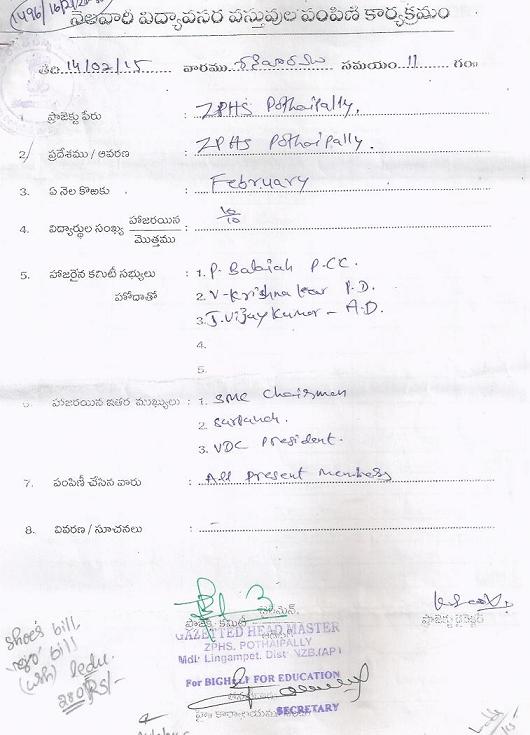 1496/16/2/20
నెలవారీ విద్యావసర వస్తువుల పంపిణి కార్యక్రమం
తేది 14/02/15 వారము శనివారము సమయం 11 గం
1. ప్రాజెక్టు పేరు : ZPHS Pothaipally,
2. ప్రదేశము / ఆవరణ : ZPHS Pothaipally.
3. ఏ నెల కొఱకు : February
4. విద్యార్థుల సంఖ్య హాజరయిన / మొత్తము : 10/10
5. హాజరైన కమిటీ సభ్యులు : 1. P. Babaiah P.CC.
హోదాతో 2. V. Krishna P.D.
3. J. Vijay Kumar - A.D.
4.
5.
6. హాజరయిన ఇతర ముఖ్యులు : 1. SMC Chairman
2. Sarpanch.
3. VDC President.
7. పంపిణీ చేసిన వారు : All Present Members
8. వివరణ / సూచనలు : -
ఛైర్మెన్,
ప్రాజెక్టు కమిటీ
ప్రాజెక్టు డైరెక్టర్
GAZETTED HEAD MASTER
ZPHS, POTHAIPALLY
Mdl: Lingampet. Dist: NZB.(AP)
For BIGHELP FOR EDUCATION
SECRETARY
Shoe's bill,
bill
(ush) ledu.
280Rs/-